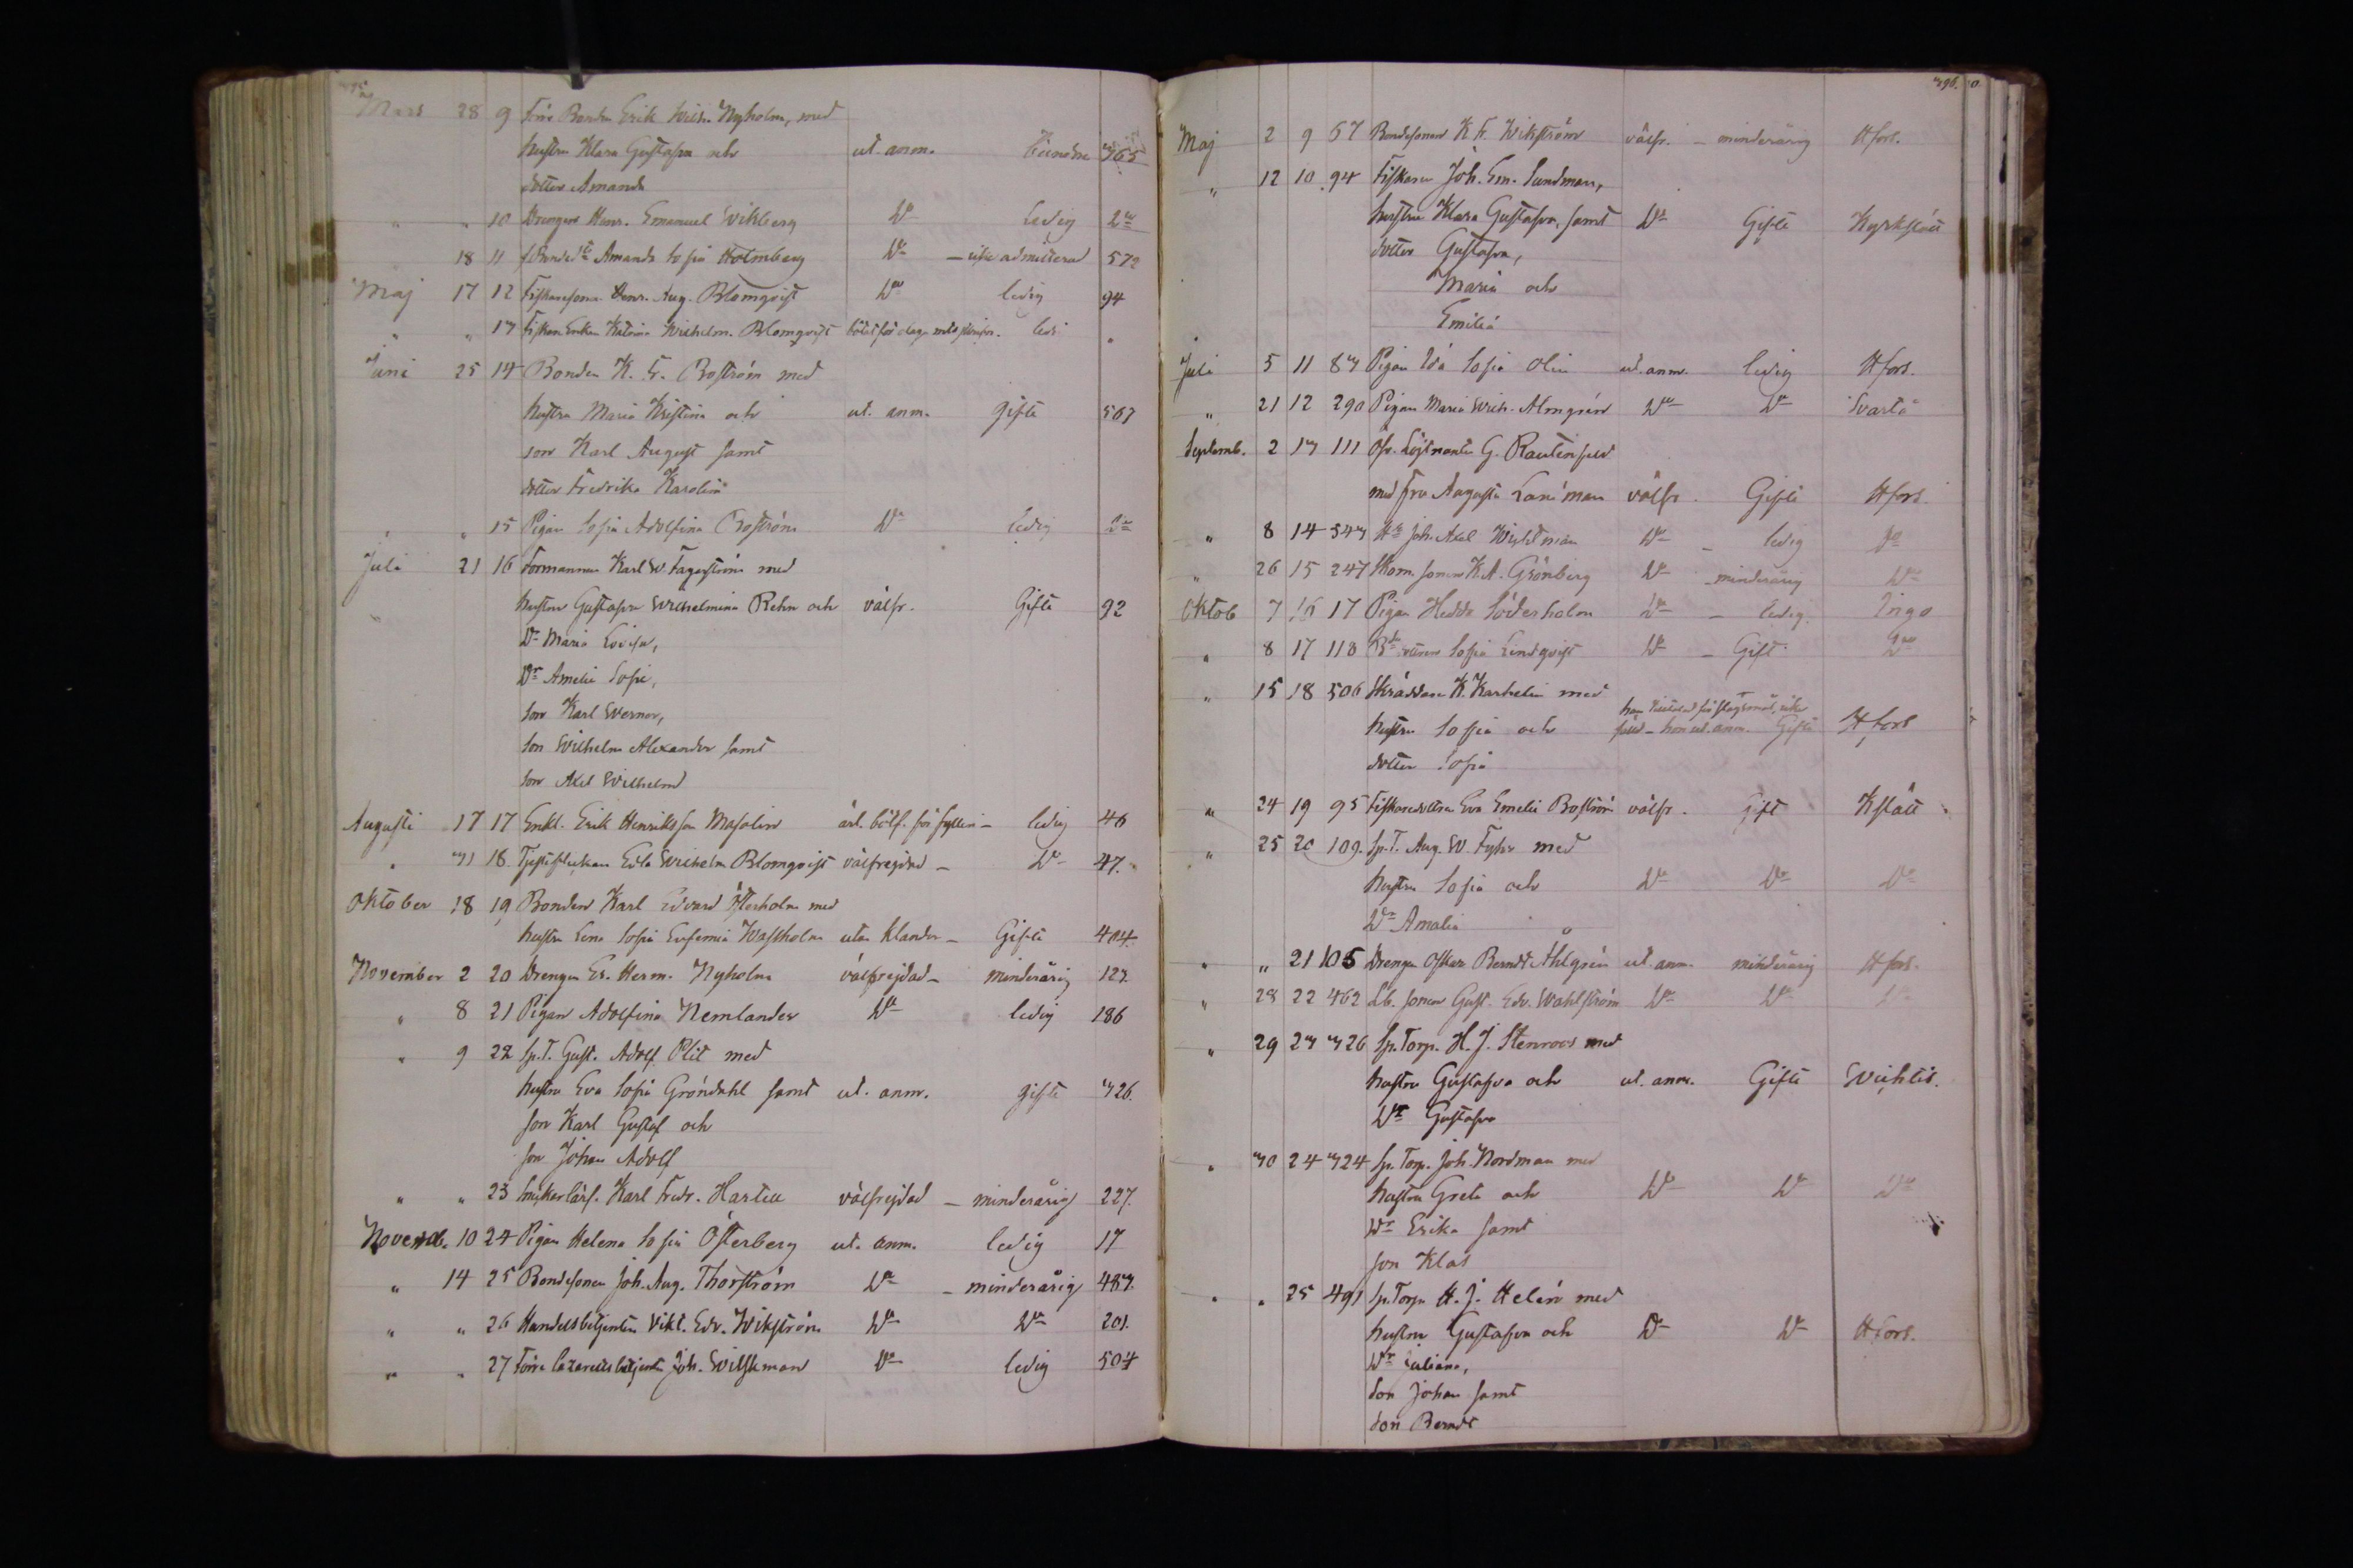 Mars 28 9 Förre Bonden Erik Wilh. Nyholm, med
hustru Klara Gustafva och ut. anm. 365
dotter Amanda
" " 10 Drengen Henr. Emanuel Wikberg Do ledig Do
18 11 Amanda Sofia Holmberg Do - icke admitterad 572
Maj 17 12 Fiskaresonen Henr. Aug. Blomqvist Do ledig 94
" " 13 Fiskare Enkan Katarina Wilhelm. Blomqvist "
Juni 25 14 Bonden K. Fr. Boström med
hustru Maria Kristina och ut. anm. gifte 567
son Karl August samt
dotter Fredrika Karolina
" " 15 Pigan Sofia Adolfina Boström Do ledig Do
Juli 21 16 Formannen Karl W Fagerström med
" hustru Gustafva Wilhelmina Rehn och välfr. Gifte 92
Dr Maria Lovisa,
Dr Amelie Sofie,
son Karl Werner,
son Wilhelm Alexander samt
son Axel Wilhelm
Augusti 17 17 Enkl. Erik Henriksson Masalin för fylleri - ledig 46
" 31 18 Edla Wilhelm. Blomqvist välfrejdad - Do 47.
Oktober 18 19 Bonden Karl Edvard Österholm med
hustru Lena Sofia Eufemia Wastholm utan klander - Gifte 404.
November 2 20 Drengen Er. Herm. Nyholm välfrejdad - minderårig 127.
" 8 21 Pigan Adolfina Nemlander Do ledig 186
" 9 22 Sp.T. Gust. Adolf Plit med
hustru Eva Sofia Gröndahl samt ut. anm. gifte 326.
son Karl Gustaf och
son Johan Adolf
" " 23 Karl Fredr. Hartell välfrejdad - minderårig 227.
Novemb. 10 24 Pigan Helena Sofia Österberg ut. anm. ledig 17
" 14 25 Bondesonen Joh. Aug. Thorström Do - minderårig 483.
" " 26 Handelsbetjenten Vikt. Edv. Wikström Do Do 201.
" " 27 Förre lazarettsbetjenten Joh. Willman Do ledig 504
396.
Maj 2 9 67 Bondesonen K. Fr. Wikström välfr. - minderårig Hfors.
" 12 10 94 Fiskaren Joh. Em. Sundman,
hustru Klara Gustafva, samt Do Gifte Kyrkslätt
dotter Gustafva,
Maria och
Emilia
Juli 5 11 83 Pigan Ida Sofia Olin ut. anm. ledig Hfors.
" 21 12 290 Pigan Maria Wilh. Almgrén Do Do Svartå
Septemb. 2 13 111 Öfv. Löjtnanten G. Rautenfeld
med fru Augusta Laniman välfr. Gifte Hfors.
" 8 14 543 Joh. Axel Do - ledig Do
" 26 15 247 Skom. sonen K.A. Grönberg Do - minderårig Do
Oktob 7 16 17 Pigan Hedda Söderholm Do - ledig Ingo
" 8 17 118 Bdedottren Sofia Lindqvist Do - Gift Do
" 15 18 506 Skräddare K. Karhelin med
hustru Sofia och hon ut. anm. Gifte Hfors
dotter Sofia
" 24 19 95 Fiskaredottren Eva Emelie Boström välfr. Gift Kslätt
" 25 20 109. Sp.T. Aug. W. Fyhr med
hustru Sofia och Do Do Do
Dr Amalia
" " 21 105 Drengen Oskar Berndt Åhlgrén ut. anm. minderårig Hfors.
" 28 22 462 Lb. sonen Gust. Edv. Wahlström Do Do Do
" 29 23 326 Sp.Torp. H. J. Stenroos med
hustru Gustafva och ut. anm. Gifte Wichtis.
Dr Gustafva
" 30 24 324 Sp.Torp. Joh. Nordman med
hustru Greta och Do Do Do
Dr Erika samt
son Klas
" " 25 491 Sp.Torp. H. J. Helén med
hustru Gustafva och Do Do Hfors.
Dr Juliana,
son Johan samt
son Berndt